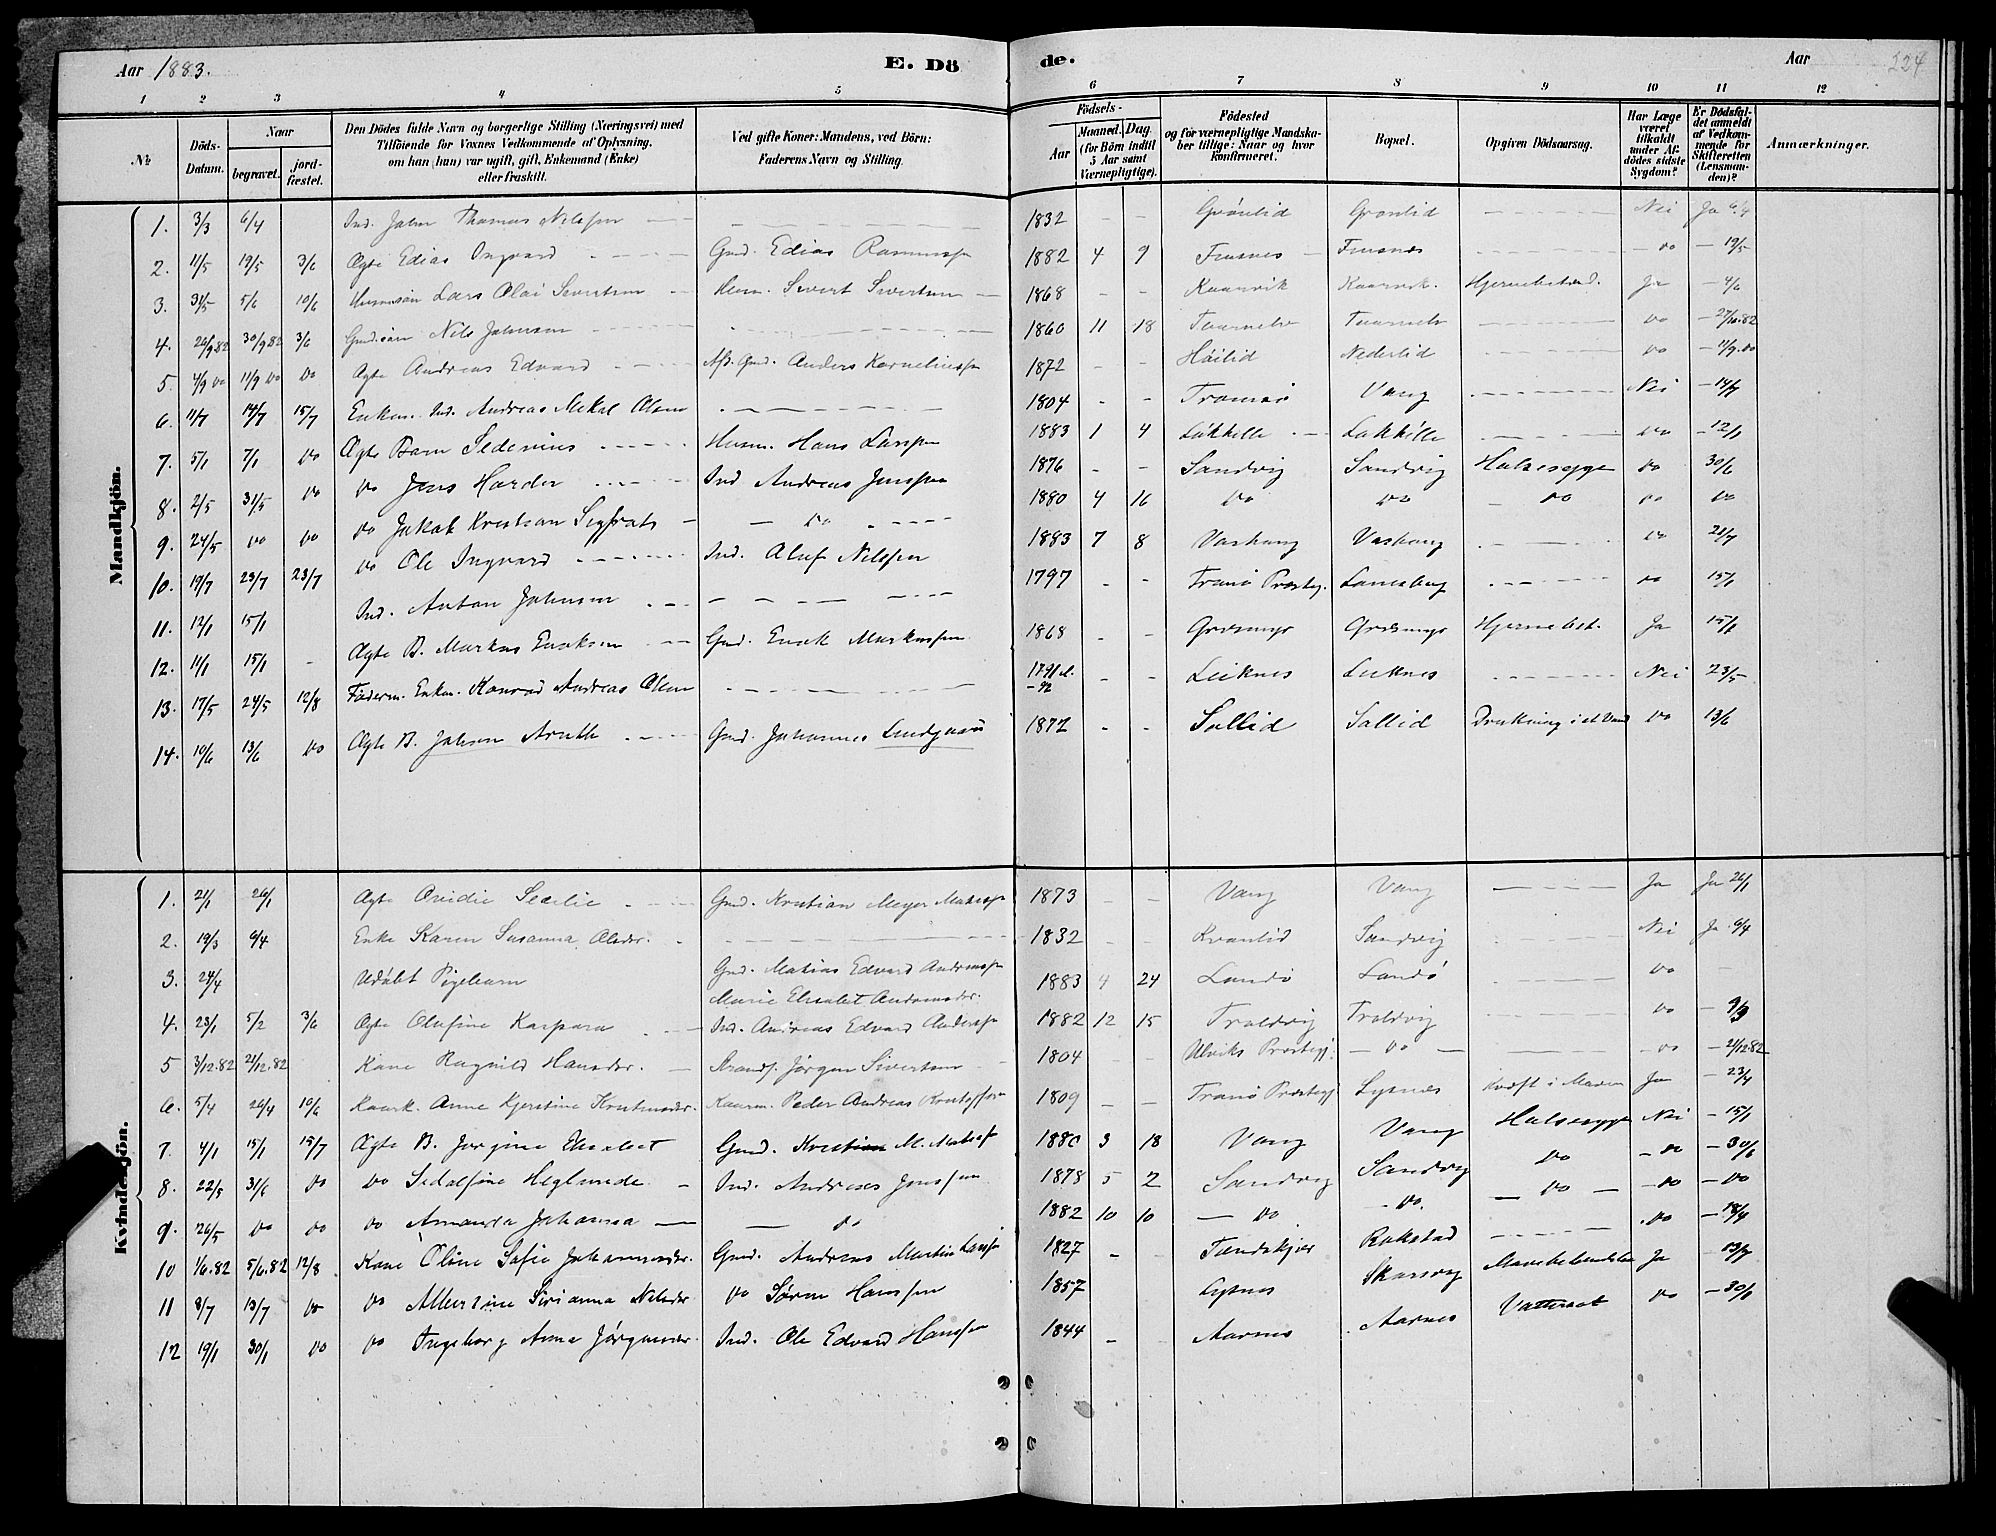 Aar 1883. E. Dö de. Aar 224
1 2 3 4 5 6 7 8 9 10 11 12
№
Döds-Datum.
Naar
begravet.
jord-fæstet.
Den Dödes fulde Navn og borgerlige Stilling (Næringsvei) med
Tilföiende for Voxnes Vedkommende af Oplysning,
om han (hun) var ugift, gift, Enkemand (Enke)
eller fraskilt.
Ved gifte Koner: Mandens, ved Börn:
Faderens Navn og Stilling.
Födsels-
Aar
Maaned. Dag.
(for Börn indtil
5 Aar samt
Værnepligtige).
Födested
og for værnepligtige Mandska-
ber tillige: Naar og hvor
konfirmeret.
Bopæl.
Opgiven Dödsaarsag.
Har Læge
været
tilkaldt
under Af-
dödes sidste
Sygdom?
Er Dödsfal-
det anmeldt
af Vedkom-
mende for
Skifteretten
(Lensman-
den)?
Anmærkninger.
Mandkjön.
1. 3/3 6/4 Ind. Johan Thomas Nilssen 1832 - - Grönlid Grönlid Nei Ja 6/4
2. 11/5 19/5 3/6 Ægte Edias Ingvard Gmd. Edias Rasmussen 1882 4 9 Finsnes Finsnes do 19/5
3. 31/5 5/6 10/6 Husmsön Lars Olai Sivertsen Husm. Sivert Sivertsen 1868 - - Kaarvik Kaarvik. Hjernebetænd. Ja 4/6
4. 26/9 82 30/9 82 3/6 Gmd.sön Nils Johnsen 1860 11 18 do 27/10.82
5. 4/9 do 11/9 do do Ægte Andreas Edvard Gmd. Anders Korneliussen 1872 - - Höilid Nederlid do 11/9 do
6. 11/7 14/7 15/7 Enkem. Ind. Andreas Mekal Olsen 1804 - - Tromsö Vang Nei 14/7
7. 5/1 7/1 do Ægte Barn Sedenius Husm. Hans Larssen 1883 1 4 Läkkelle Läkkelle do 12/1
8. 2/5 31/5 do do Jens Harder Ind Andreas Jenssen 1876 - - Sandvig Sandvig Halssyge do 30/6
9. 24/5 do do do Jakob Kristian Sigfrats do 1880 4 16 do do do do do
10. 19/7 23/7 23/7 do Ole Ingvard Ind. Oluf Nilssen 1883 7 8 Vashaug Vashaug do 21/7
11. 12/1 15/1 Ind. Anton Johnsen 1797 - - Tranö Præsteg. Lanesberg do 15/1
12. 11/1 15/1 - Ægte B. Markus Enoksen Gmd. Enok Markussen 1868 - - Græsmyr Græsmyr Hjernebet. Ja 15/1
13. 17/5 24/5 12/8 Föderm. Enkm. Konrad Andreas Olsen 1791 el. -92 - - Leiknes Leiknes Nei 23/5
14. 10/6 13/6 do Ægte B. Johan Arnth Gmd. Johannes Lundgaard 1872 - - Sollid Sollid Drukning i et Vand do 13/6
Kvindekjön.
1. 21/1 26/1 Ægte Ovidie Secelie Gmd. Kristian Meyer 1873 - - Vang Vang Ja Ja 26/1
2. 19/3 6/4 Enke Karen Susanna Olsdr. 1832 - - Kvanlid Sandvig Nei Ja 6/4
3. 24/4 Udöbt Pigebarn Gmd. Matias Edvard Andreassen
Marie Elisabet Andreasdr. 1883 4 24 Landö Landö do -
4. 23/1 5/2 3/6 Ægte Olufine Kaspara Ind. Andreas Edvard Anderssen 1882 12 15 Troldvig Troldvig do 9/3
5 3/12.82 21/12.82 Kone Ragnild Hansdr. Strands. Jörgen Sivertsen 1804 - - Ulviks Præstegj. do do 21/12.82
6. 5/4 26/4 10/6 Kaark. Anne Kjerstine Kaarm. Peder Andreas Kristoffersen 1809 - - Tranö Præstegj Lysnes Kræft i Maven Ja 23/4
7. 4/1 15/1 15/7 Ægte B. Jörgine Elisabet Gmd. Kristian M. 1880 3 18 Vang Vang Halssyge Nei 15/1
8. 22/5 31/5 do do Sedolfine Heglunde Ind. Andreas Jenssen 1878 5 2 Sandvig Sandvig do do 30/6
9. 26/5 do do do Amanda Johanna do 1882 10 10 do do. do do do
10 1/6.82 5/6.82 12/8 Kone Oline Sofie Johannesdr. Gmd. Andreas Martin 1827 - Tændskjer Rakstad do 18/4
11 8/7 13/7 do do Albertine Sirianna Nilsdr do Sören Hanssen 1857 Lysnes Skarsvag Mavebetændelse Ja 13/7
12 19/1 30/1 do do Ingeborg Anna Jörgensdr. Ind. Ole Edvard Hanssen 1844 - Aarnes Aarnes Vattersot do 30/1